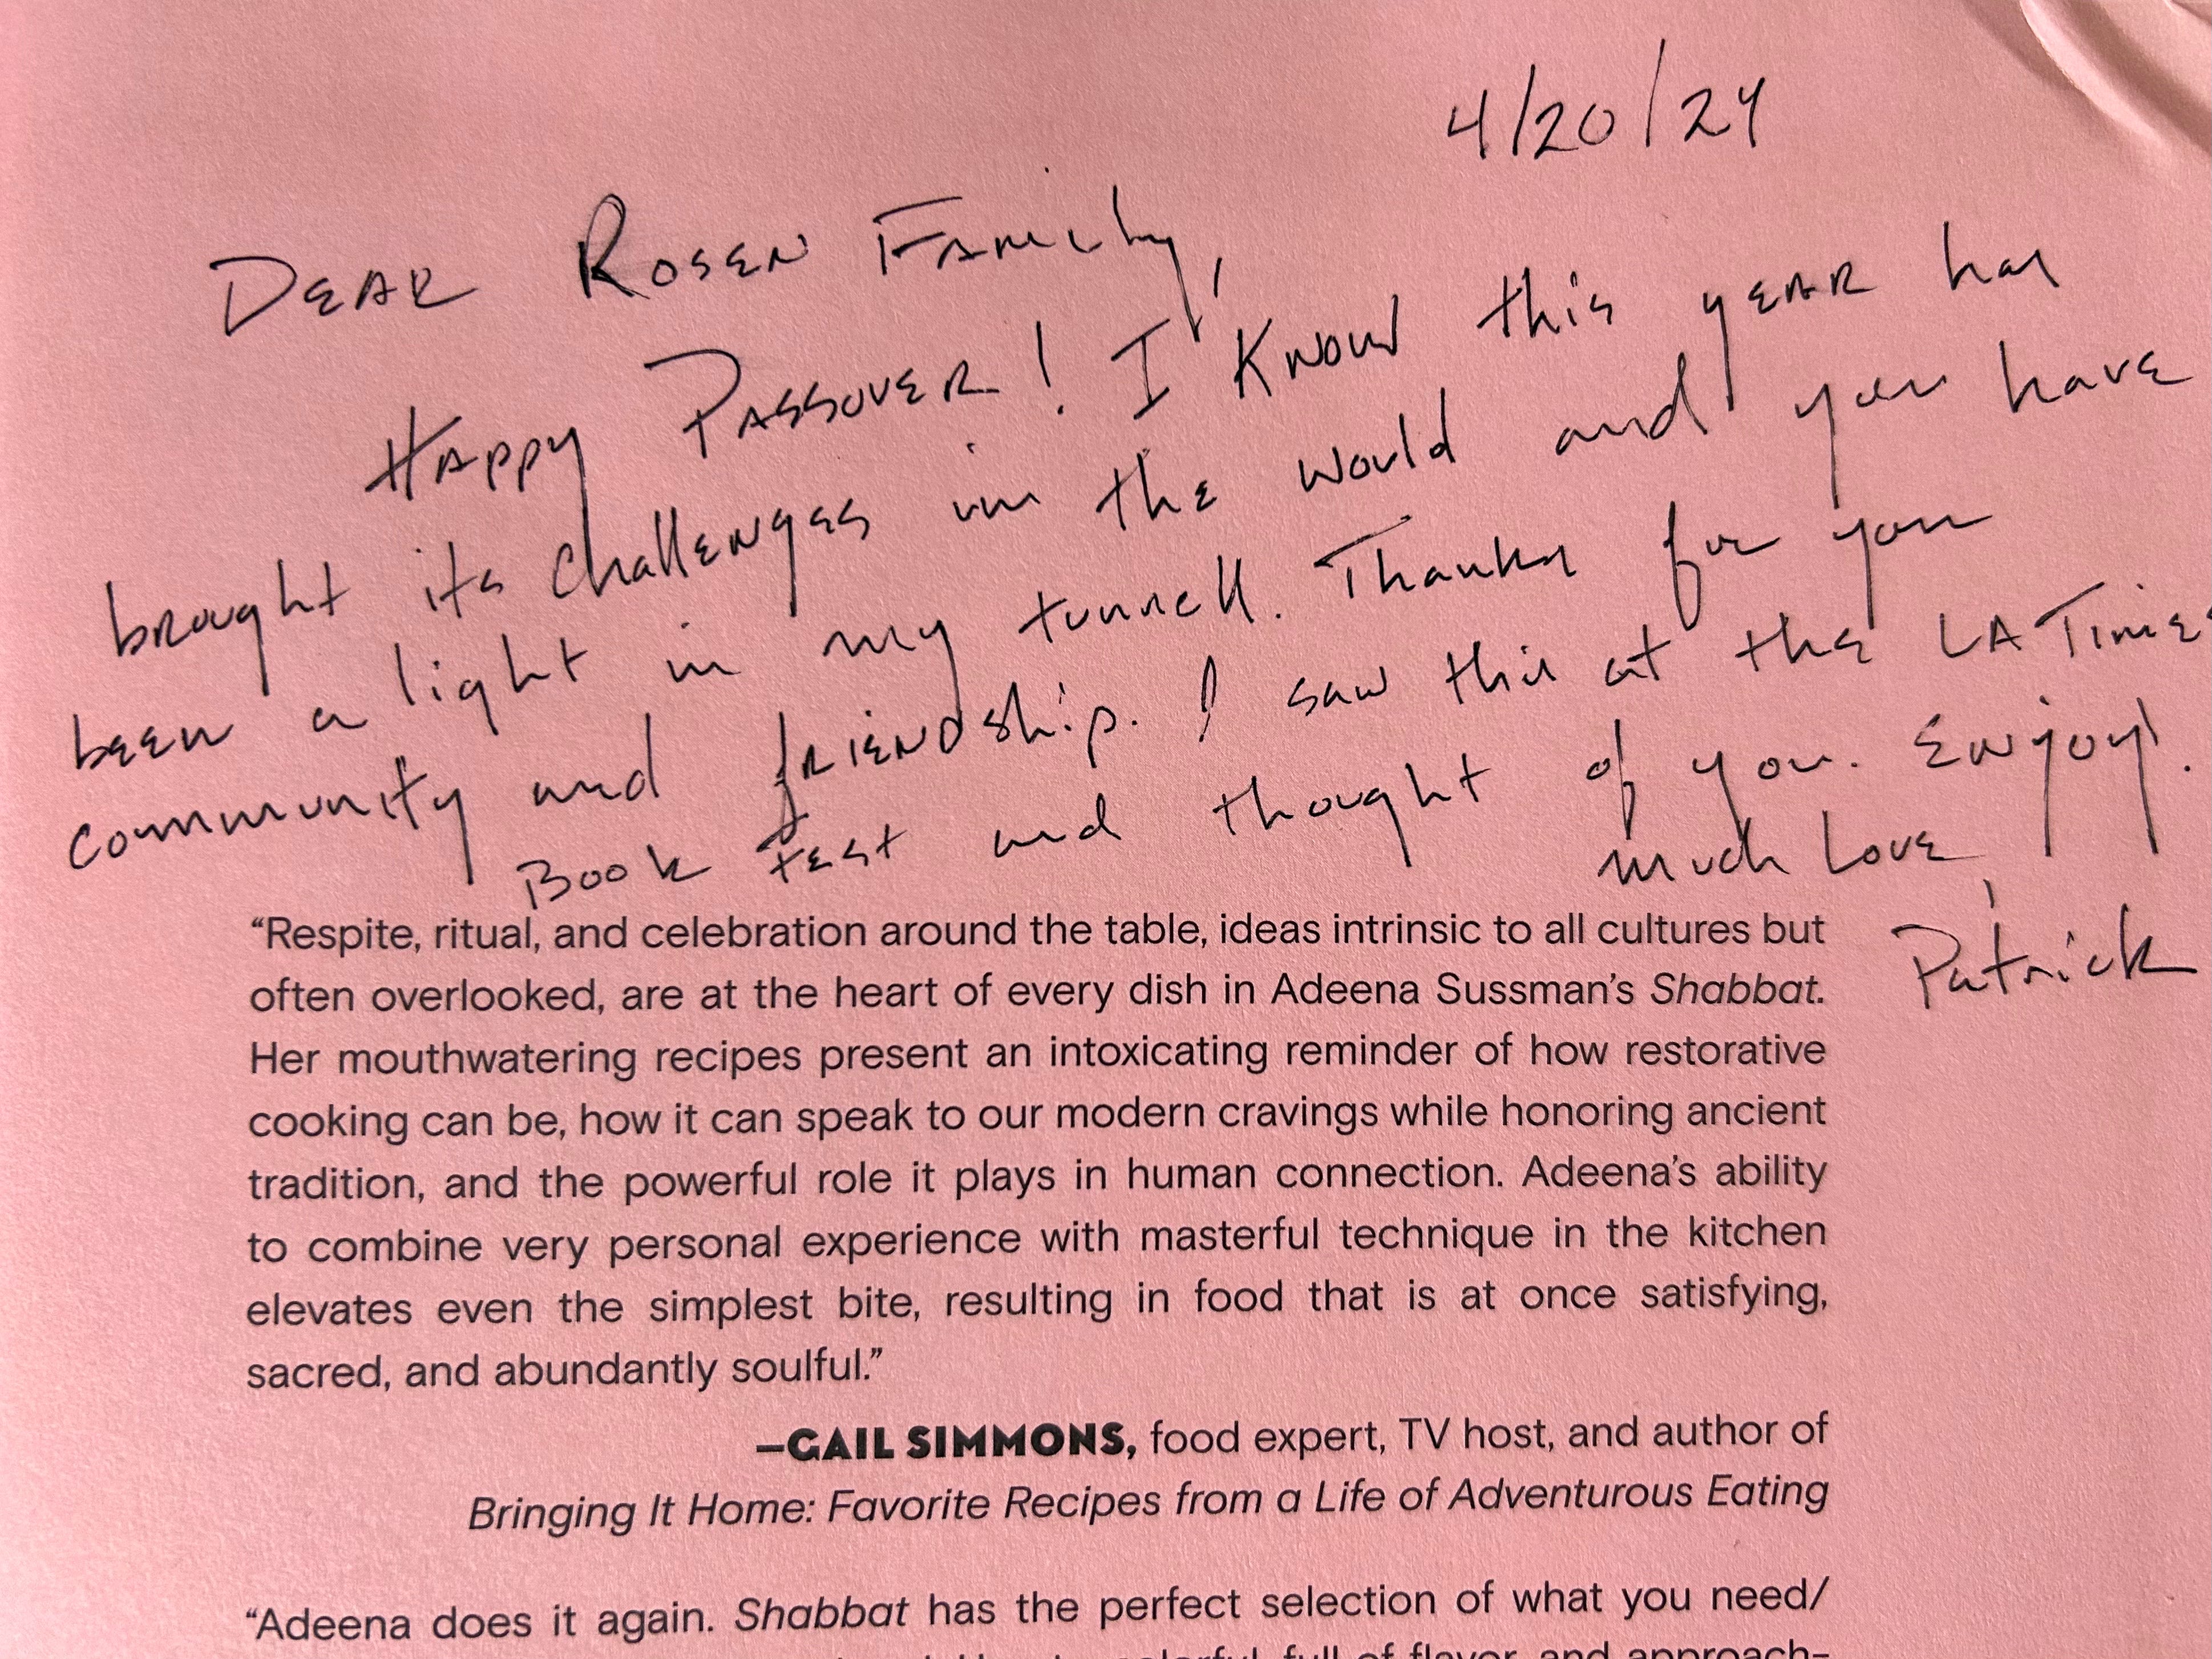 4/20/24
DEAR ROSEN FAMILY,
HAPPY PASSOVER! I KNOW this YEAR has
brought its challENges in the world and you have
been a light in my tunnell. Thanks for your
community and fRIENDship. I saw this at the LA Times
Book Fest and thought of you. Enjoy!
much Love,
Patrick
“Respite, ritual, and celebration around the table, ideas intrinsic to all cultures but
often overlooked, are at the heart of every dish in Adeena Sussman’s Shabbat.
Her mouthwatering recipes present an intoxicating reminder of how restorative
cooking can be, how it can speak to our modern cravings while honoring ancient
tradition, and the powerful role it plays in human connection. Adeena’s ability
to combine very personal experience with masterful technique in the kitchen
elevates even the simplest bite, resulting in food that is at once satisfying,
sacred, and abundantly soulful.”
—GAIL SIMMONS, food expert, TV host, and author of
Bringing It Home: Favorite Recipes from a Life of Adventurous Eating
“Adeena does it again. Shabbat has the perfect selection of what you need/
colorful, full of flavor, and approach-